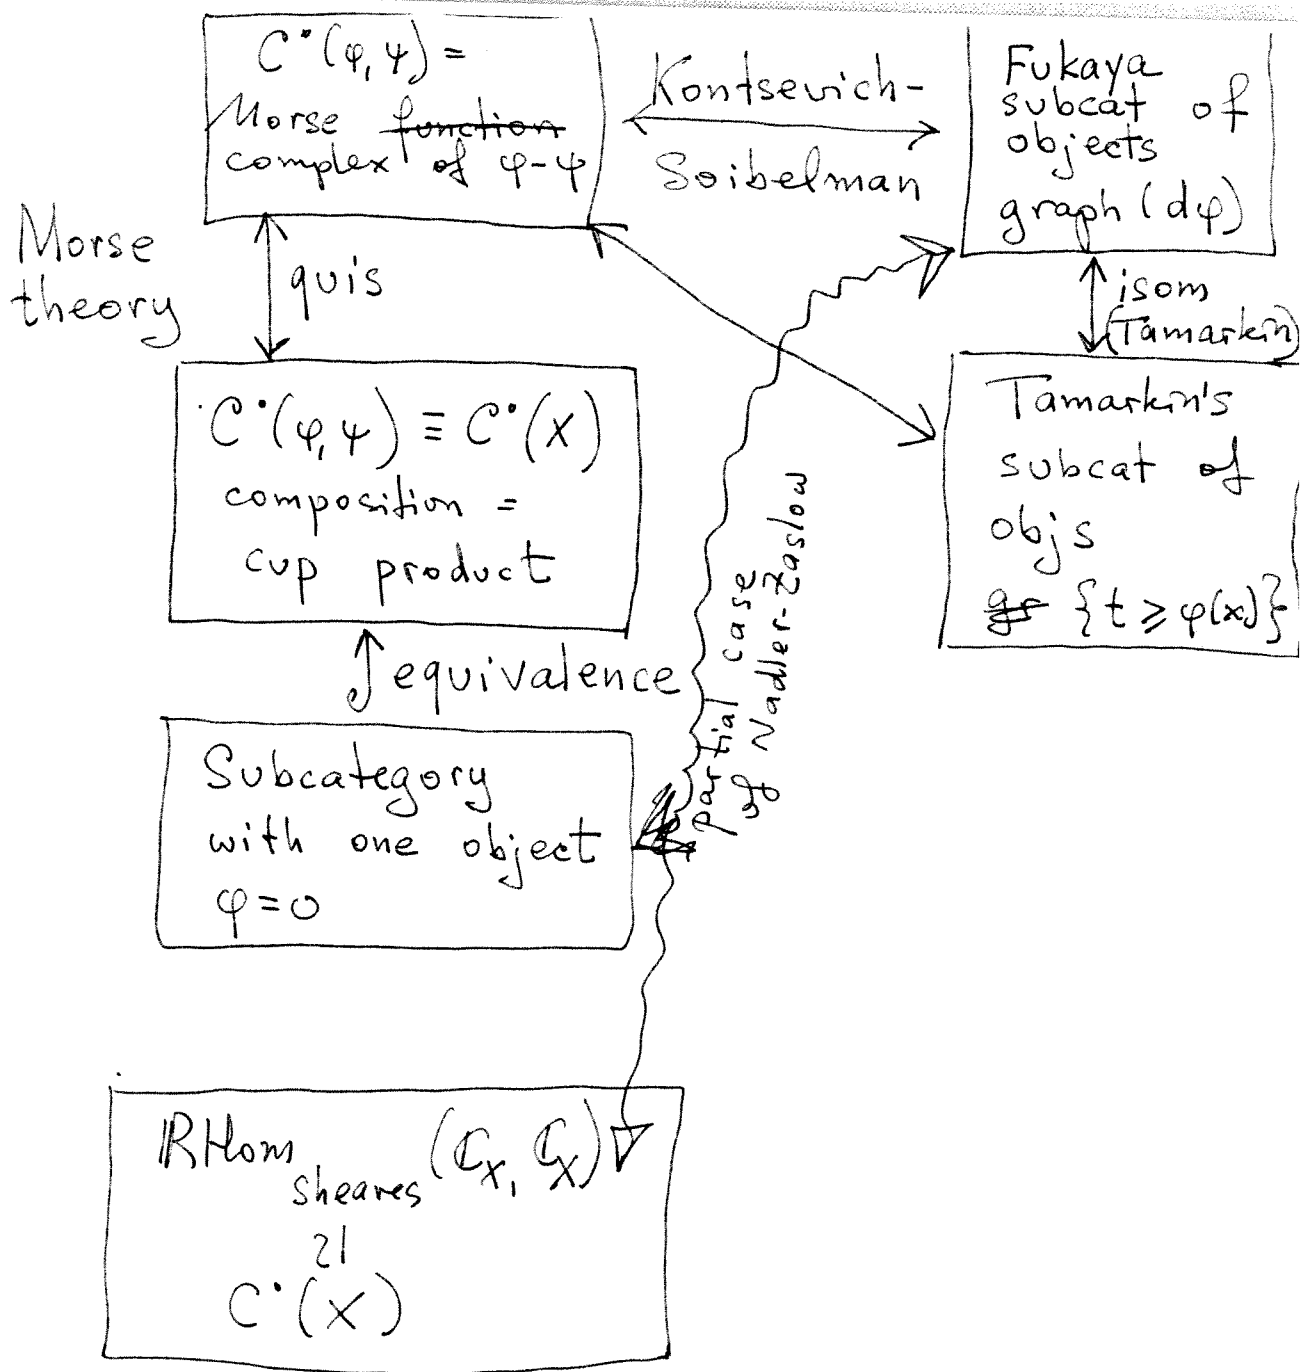 C•(φ,ψ) =
Morse function
complex of φ-ψ
Kontsevich-
Soibelman
Fukaya
subcat of
objects
graph (dφ)
Morse
theory
quis
isom
(Tamarkin)
C•(φ,ψ) ≡ C•(X)
composition =
cup product
Tamarkin's
subcat of
objs
gr {t ≥ φ(x)}
equivalence
partial case
of Nadler-Zaslow
Subcategory
with one object
φ=0
RHom sheaves (ℂ_X, ℂ_X)
≀|
C•(X)